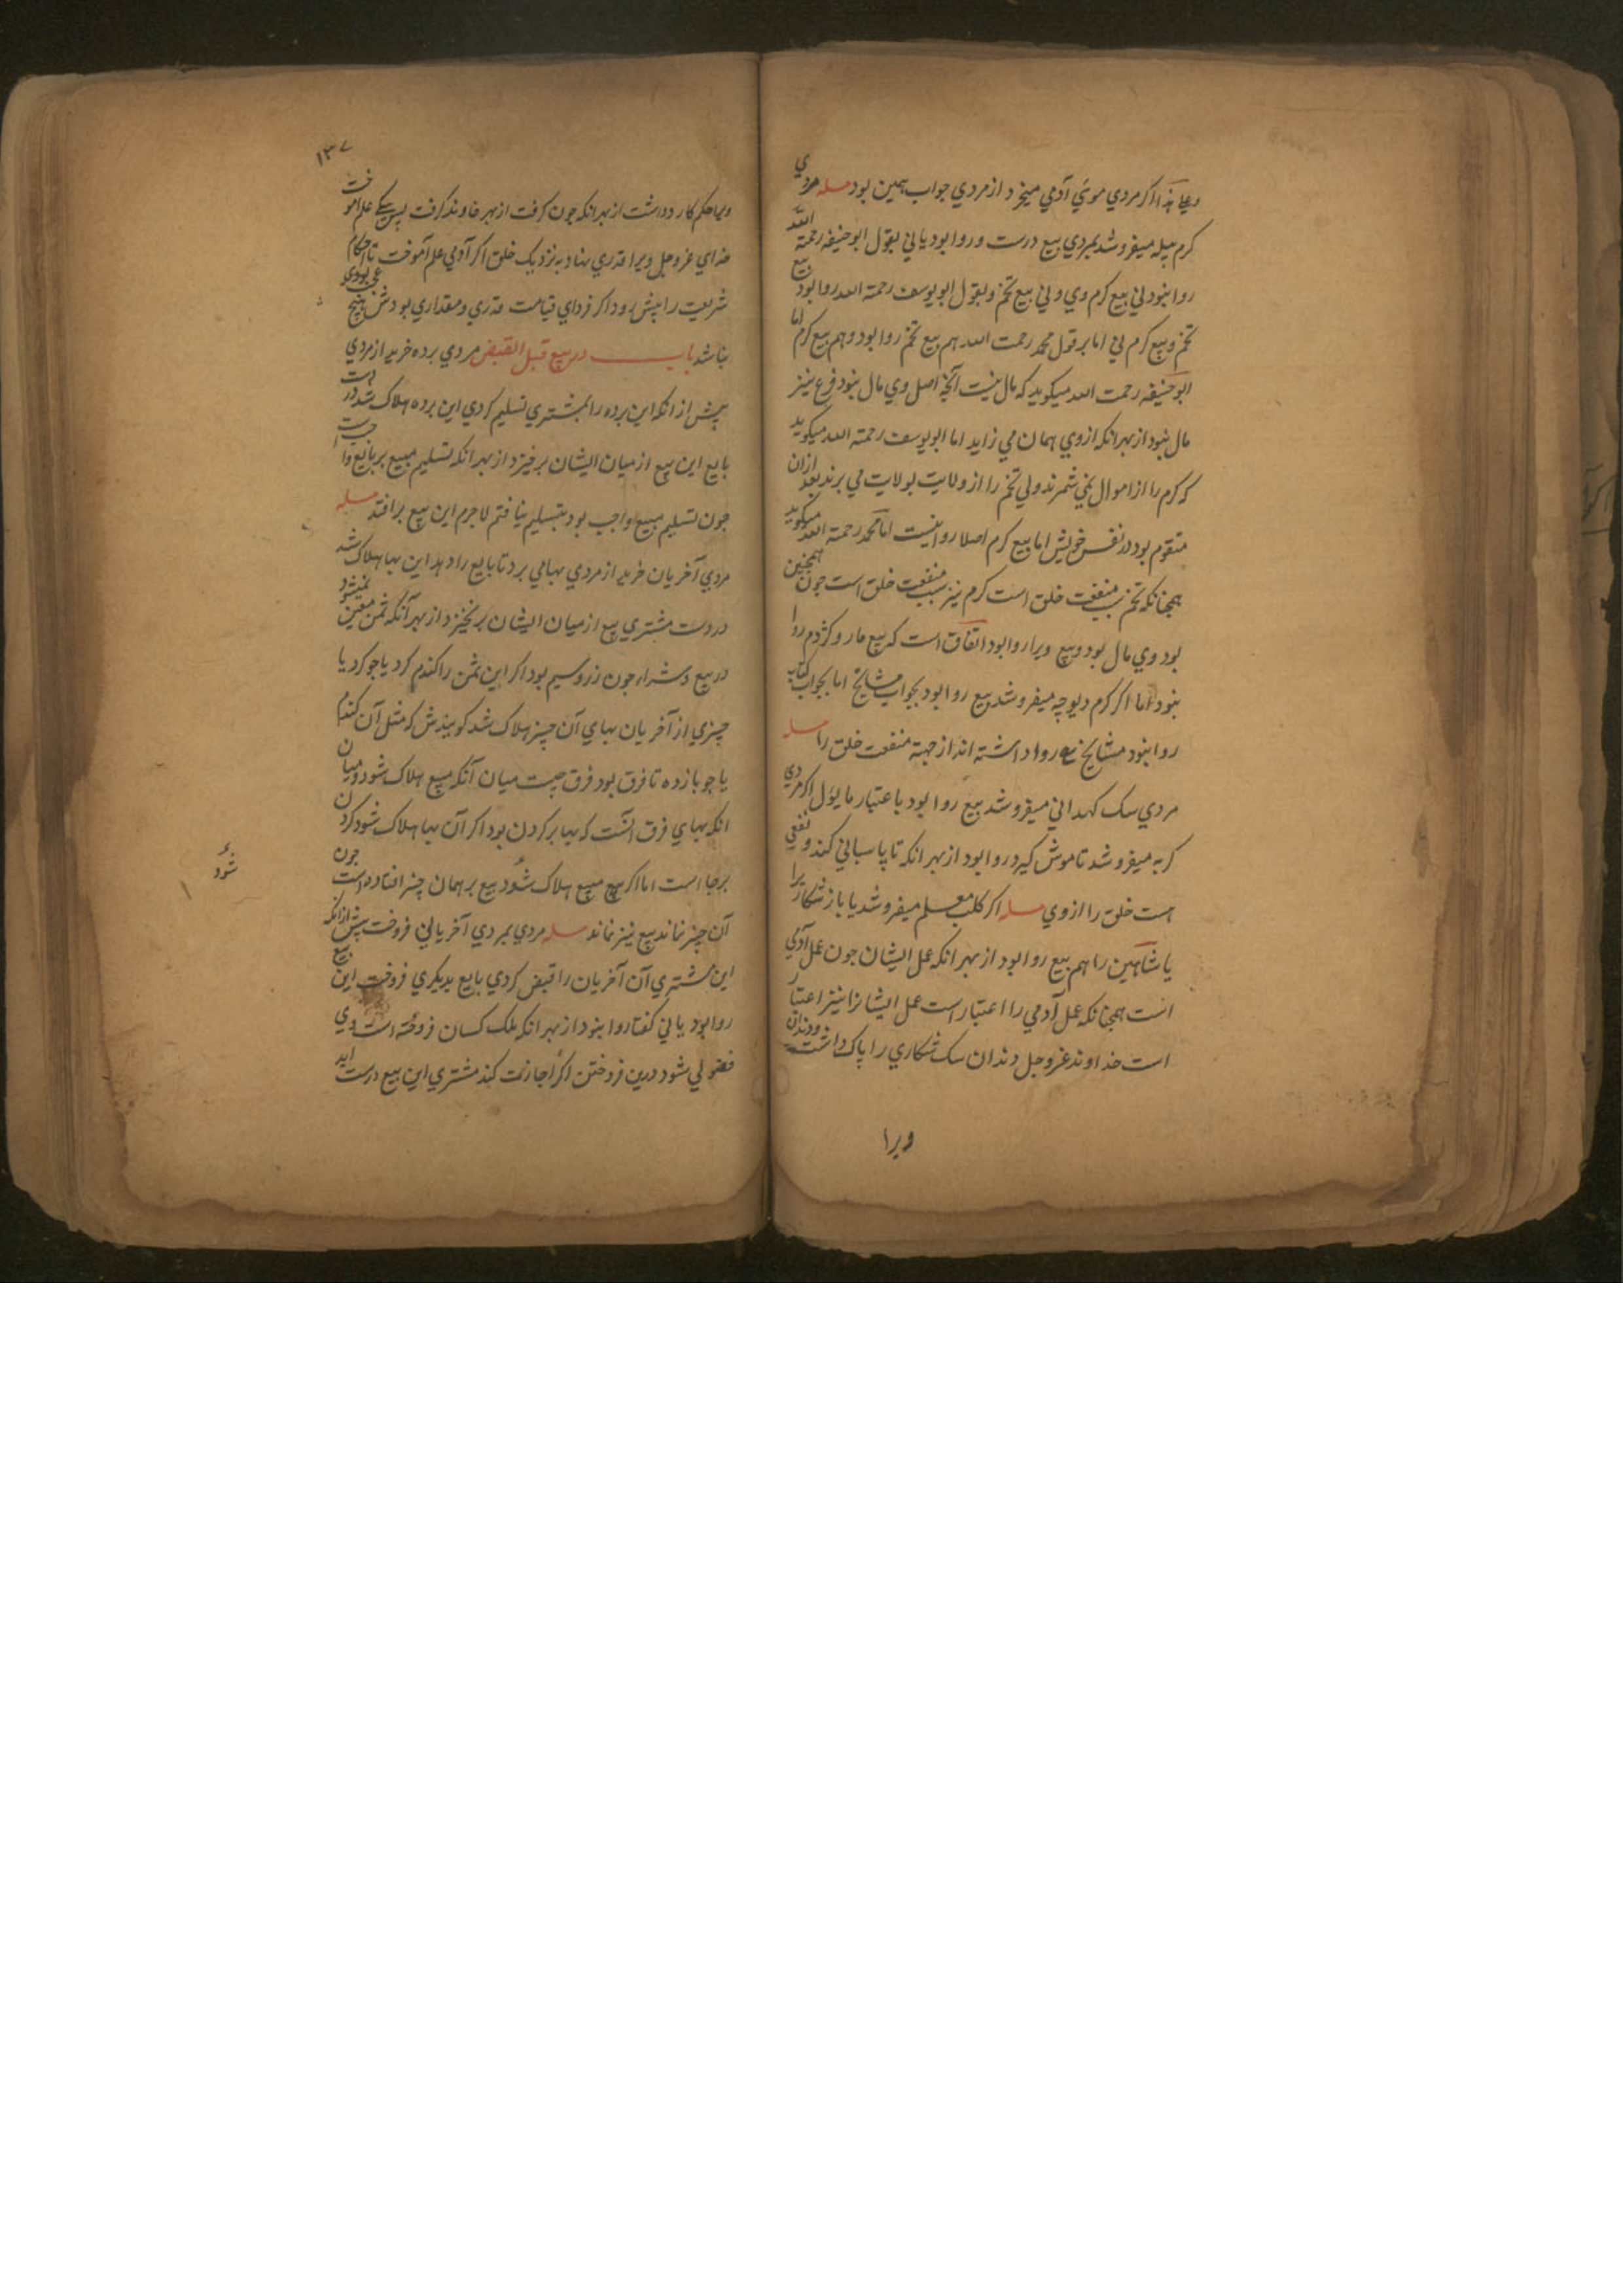 وعلی هذا اگر مردي موي آدمي میخرد از مردي جواب همین بود مسله مردي
کرم پیله میفروشد بمردي بیع درست و روا بود یا ني بقول ابو حنیفه رحمة الله
روا نبود ني بیع کرم وي و ني بیع تخم و بقول ابو یوسف رحمة الله روا بود بیع
تخم و بیع کرم ني اما بر قول محمد رحمت الله هم بیع تخم روا بود و هم بیع کرم اما
ابو حنیفه رحمت الله میکوید که مال نیست آنچه اصل وي مال نبود فرع نیز
مال نبود از بهر انکه ازوي همان مي زاید اما ابو یوسف رحمة الله میکوید
که کرم را از اموال نمي شمرند ولي تخم را از ولایت بولایت مي برند بعد ازان
متقوم بود در نفس خویش اما بیع کرم اصلا روا نیست اما محمد رحمة الله میکوید
همچنانکه تخم سبب منفعت خلق است کرم نیز سبب منفعت خلق است جون همچنین
بود وي مال بود و بیع ویرا روا بود اتفاق است که بیع مار و کژدم روا
نبود اما اکر کرم دیوچه میفروشد بیع روا بود بجواب مشایخ اما بجواب کتاب
روا نبود مشایخ روا داشته اند از جهته منفعت خلق را مسله
مردي سک کهداني میفروشد بیع روا بود باعتبار ما یؤل اکر مردي
کربه میفروشد تا موش کیرد روا بود از بهر انکه تا پاسباني کند و نفعي
است خلق را ازوي مسله اکر کلب معلم میفروشد یا باز شکار را
یا شاهین را هم بیع روا بود از بهر انکه عمل ایشان جون عمل آدمي
است همچنانکه عمل آدمي را اعتبار است عمل ایشانرا نیز اعتبار
است خداوند عزوجل دندان سک شکاري را پاک داشت و دندان
ویرا
۱۳۷
ویرا حکم کارد داشت از بهر انکه جون کرفت از بهر خاوند کرفت پس سکي علم اموخت
خداي عزوجل ویرا قدري نهاد به نزدیک خلق اکر آدمي علم آموخت تا احکام
شریعت را پیش رود اکر فرداي قیامت قدري و مقداري بودش هیچ عجب نبود
نباشد باب در بیع قبل القبض مردي برده خرید از مردي
پیش از انکه این برده را بمشتري تسلیم کردي این برده هلاک شد در دست
بایع این بیع از میان ایشان برخیزد از بهر انکه تسلیم مبیع بر بایع واجبست
جون تسلیم مبیع واجب بود بتسلیم نیافتم لاجرم این بیع برافتد مسله
مردي آخریان خرید از مردي بهامي برد تا بایع را دهد این بها هلاک شد
در دست مشتري بیع از میان ایشان برنخیزد از بهر آنکه ثمن معین نمیشود
در بیع و شراء جون زر و سیم بود اکر این ثمن را کندم کرد یا جو کرد یا
چیزي از آخریان بهاي آن چیز هلاک شد کوییدش که مثل آن کندم
یا جو بازده تا فرق بود فرق چیست میان آنکه مبیع هلاک شود و میان
انکه بهاي فرق آنست که بها بر کردن بود اکر آن بها هلاک شود کردن
برجا است اما اکر مبیع هلاک شود بیع بر همان چیز افتاده است جون
آن چیز نماند بیع نیز نماند مسله مردي بمردي آخریاني فروخت پیش از انکه
این مشتري آن آخریان را قبض کردي بایع بدیکري فروخت این بیع
روا بود یا ني کفتا روا نبود از بهر انکه ملک کسان فروخته است وي
فضولي شود درین فروختن اکر اجازت کند مشتري این بیع درست اید
شود